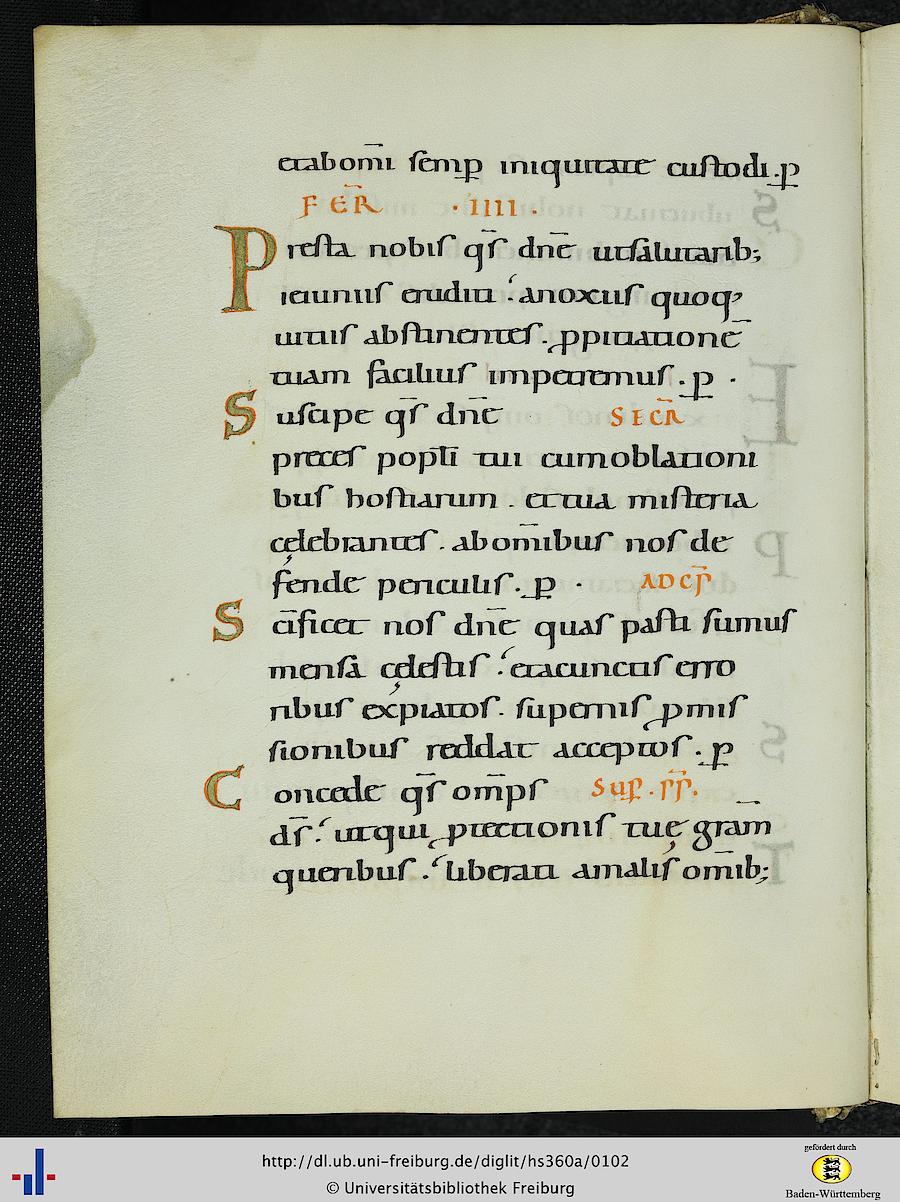 et ab om̄i semp̲ iniquitate custodi . p̲
FER̄ · IIII ·
Presta nobis q̄s dn̄e ut salutarib;
ieiuniis eruditi ⁏ a noxiis quoq;
uitiis abstinentes . ꝓpitiationē
tuam facilius impetremus . p̲ .
Suscipe q̄s dn̄e SECR̄
preces popl̄i tui cum oblationi
bus hostiarum . et tua misteria
cęlebrantes . ab om̄ibus nos de
fende periculis . p̲ · AD CP̄
Sc̄ificet nos dn̄e quas pasti sumus
mensa cęlestis ⁏ et a cunctis erro
ribus expiatos . supernis ꝓmis
sionibus reddat acceptos . p̲
Concede q̄s om̄ps SUP̲ . PP̄ .
ds̄ ⁏ ut qui ꝓtectionis tuę gram̄
queribus ⁏ liberati a malis om̄ib;
http://dl.ub.uni-freiburg.de/diglit/hs360a/0102
© Universitätsbibliothek Freiburg
gefördert durch
Baden-Württemberg